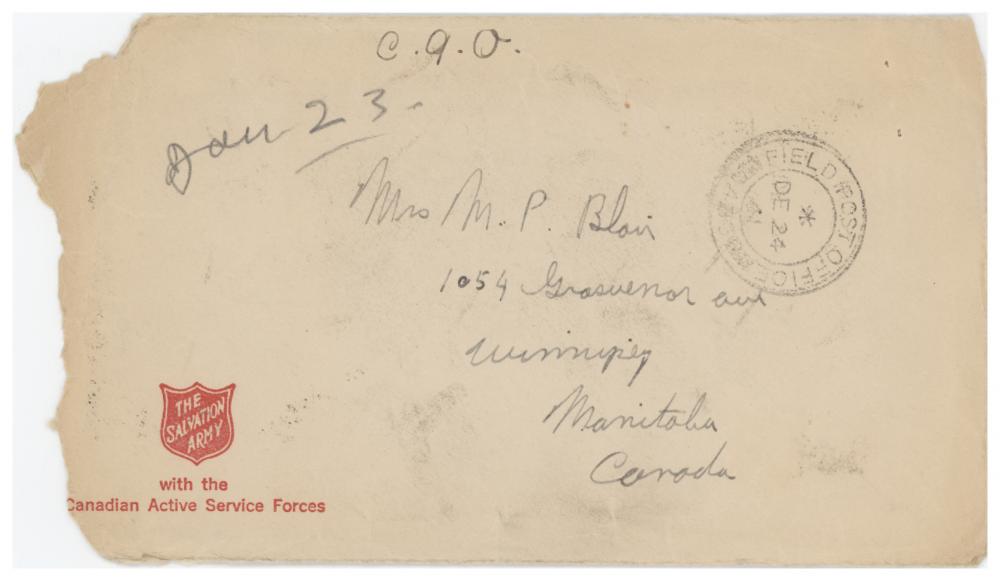 C.A.O.
Jan 23.
Mrs M. P. Blair
1054 Grosvenor ave
Winnipeg
Manitoba
Canada
FIELD POST OFFICE
DE 24
41
THE
SALVATION
ARMY
with the
Canadian Active Service Forces